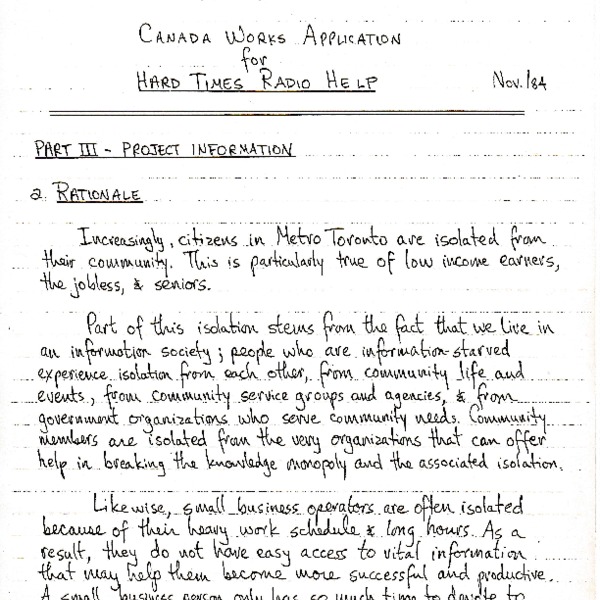 CANADA WORKS APPLICATION
for
HARD TIMES RADIO HELP
Nov./84
PART III - PROJECT INFORMATION
a. RATIONALE
Increasingly, citizens in Metro Toronto are isolated from
their community. This is particularly true of low income earners,
the jobless, & seniors.
Part of this isolation stems from the fact that we live in
an information society; people who are information-starved
experience isolation from each other, from community life and
events, from community service groups and agencies, & from
government organizations who serve community needs. Community
members are isolated from the very organizations that can offer
help in breaking the knowledge monopoly and the associated isolation.
Likewise, small business operators are often isolated
because of their heavy work schedule & long hours. As a
result, they do not have easy access to vital information
that may help them become more successful and productive.
A small business person only has so much time to devote to